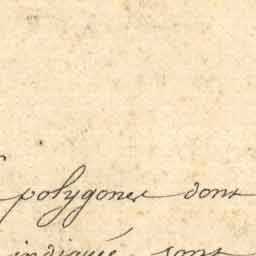 polygones dont
indiquée sont